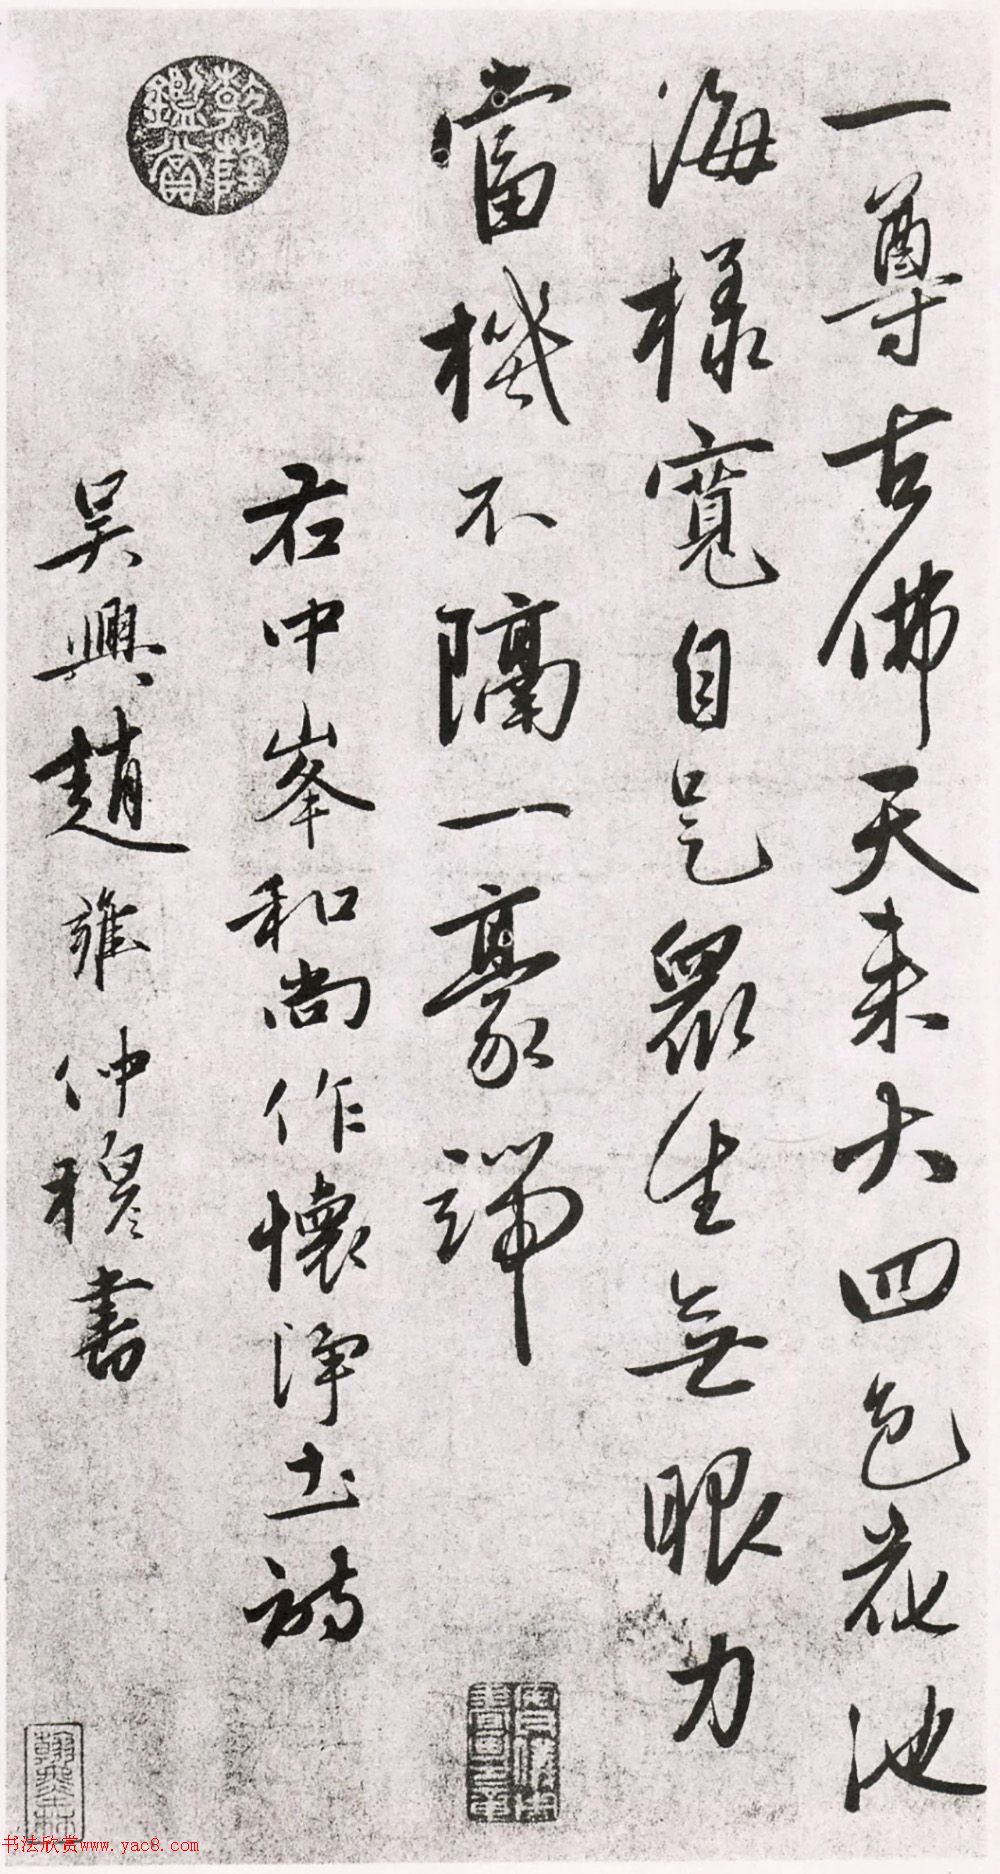 一尊古佛天来大四色花池
海樣寬自是眾生無眼力
當機不隔一豪端
右中峯和尚作懷淨土詩
吳興趙雍仲穆書
乾隆
鑑賞
书法欣赏www.yac8.com